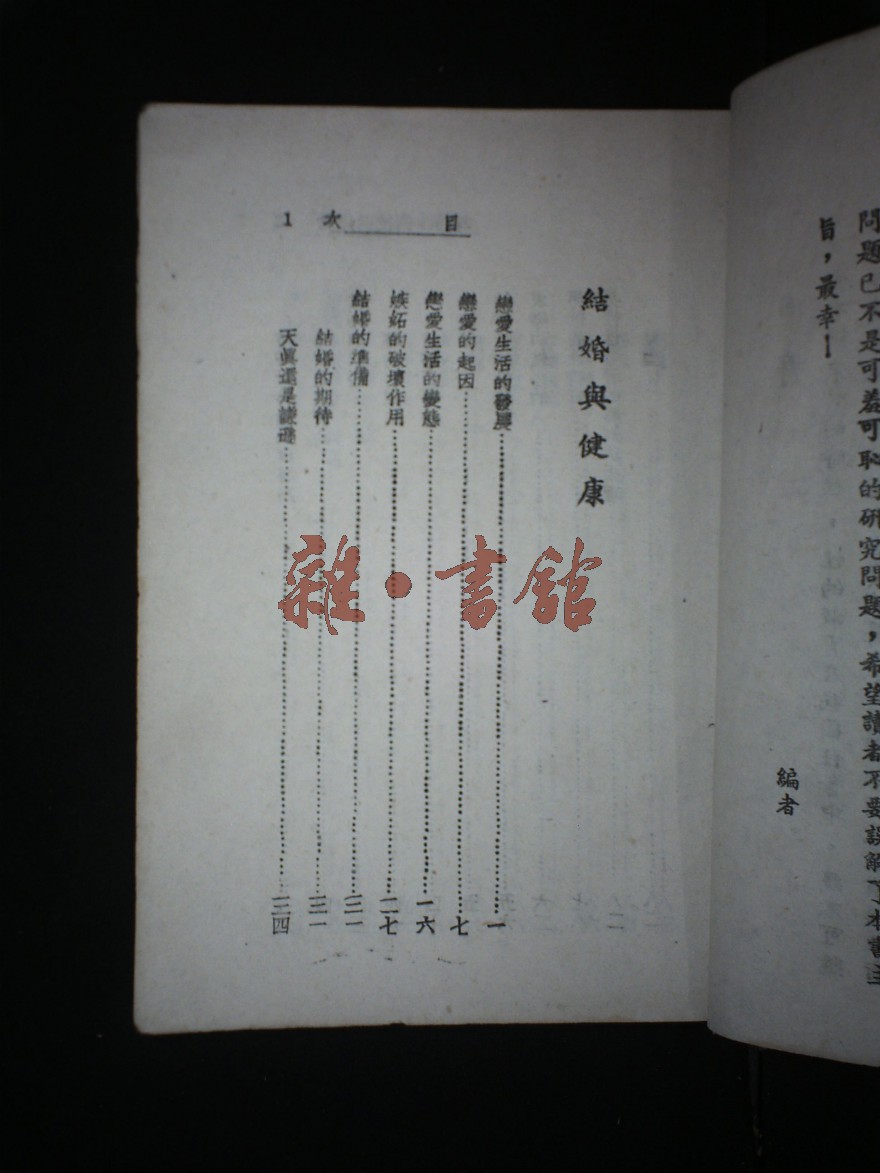 問題已不是可羞可恥的研究問題，希望讀者不要誤解了本書主
旨，最幸！
編者
目 次 1
結婚與健康
戀愛生活的發展……一
戀愛的起因……七
戀愛生活的變態……一六
嫉妬的破壞作用……二七
結婚的準備……三一
結婚的期待……三一
天眞還是謙遜……三四
雜·書館